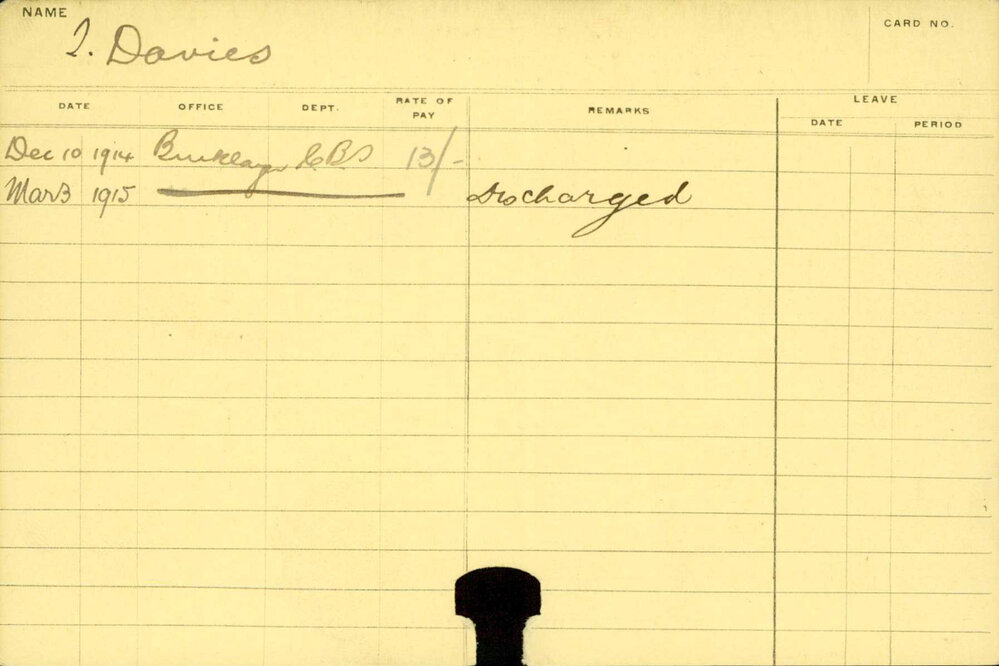 NAME
CARD NO.
Davies
DATE OFFICE DEPT. RATE OF PAY REMARKS LEAVE
DATE PERIOD
Dec 10 1914 13/-
Mar 3 1915 Discharged